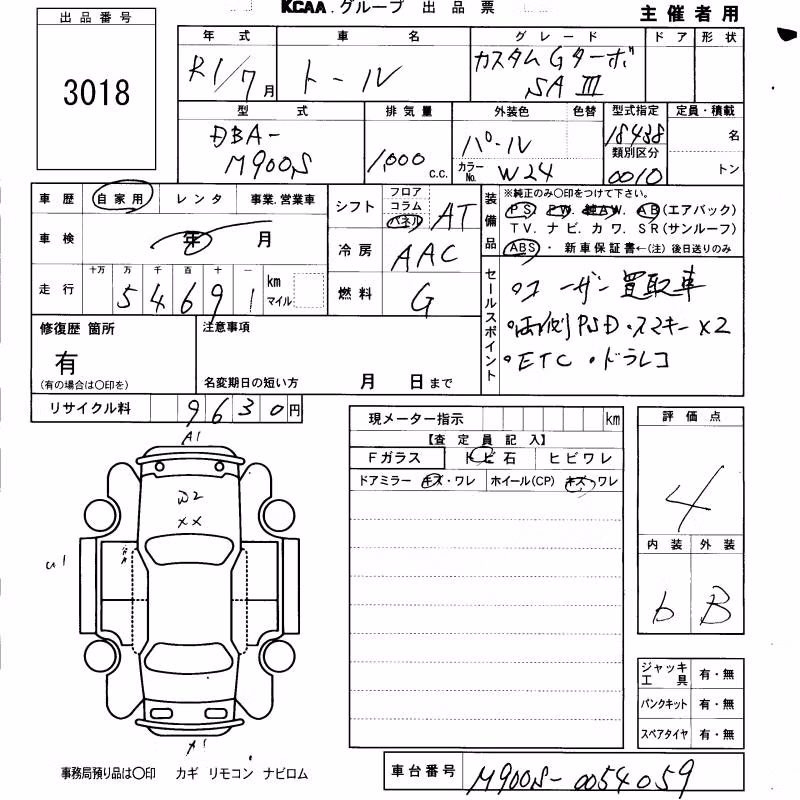 KCAA.グループ 出品票
主催者用
出品番号
3018
年式 車名 グレード ドア 形状
R1/7月 トール カスタムGターボ
SAⅢ
型式 排気量 外装色 色替 型式指定 定員・積載
DBA-
M900S
1,000 c.c.
パール
カラーNo. W24
18438
類別区分
0010
名
トン
車歴 自家用 レンタ 事業.営業車
車検 年 月
走行 十万 万 千 百 十 一
54691 km
マイル
シフト フロア コラム パネル AT
冷房 AAC
燃料 G
装備品
※純正のみ○印をつけて下さい。
PS. PW. 純AW. AB(エアバック)
TV. ナビ. カワ. SR(サンルーフ)
ABS・新車保証書←(注)後日送りのみ
セールスポイント
・ユーザー買取車
・両側PSD・スマキーx2
・ETC ・ドラレコ
修復歴 箇所
有
(有の場合は○印を)
注意事項
名変期日の短い方 月 日まで
リサイクル料 9630円
現メーター指示 km
【査定員記入】
Fガラス トビ石 ヒビワレ
ドアミラー キズ・ワレ ホイール(CP) キズ・ワレ
評価点
4
内装 外装
b B
A1
W2
XX
U1
A1
ジャッキ 工具 有・無
パンクキット 有・無
スペアタイヤ 有・無
事務局預り品は○印 カギ リモコン ナビロム
車台番号 M900S-0054059